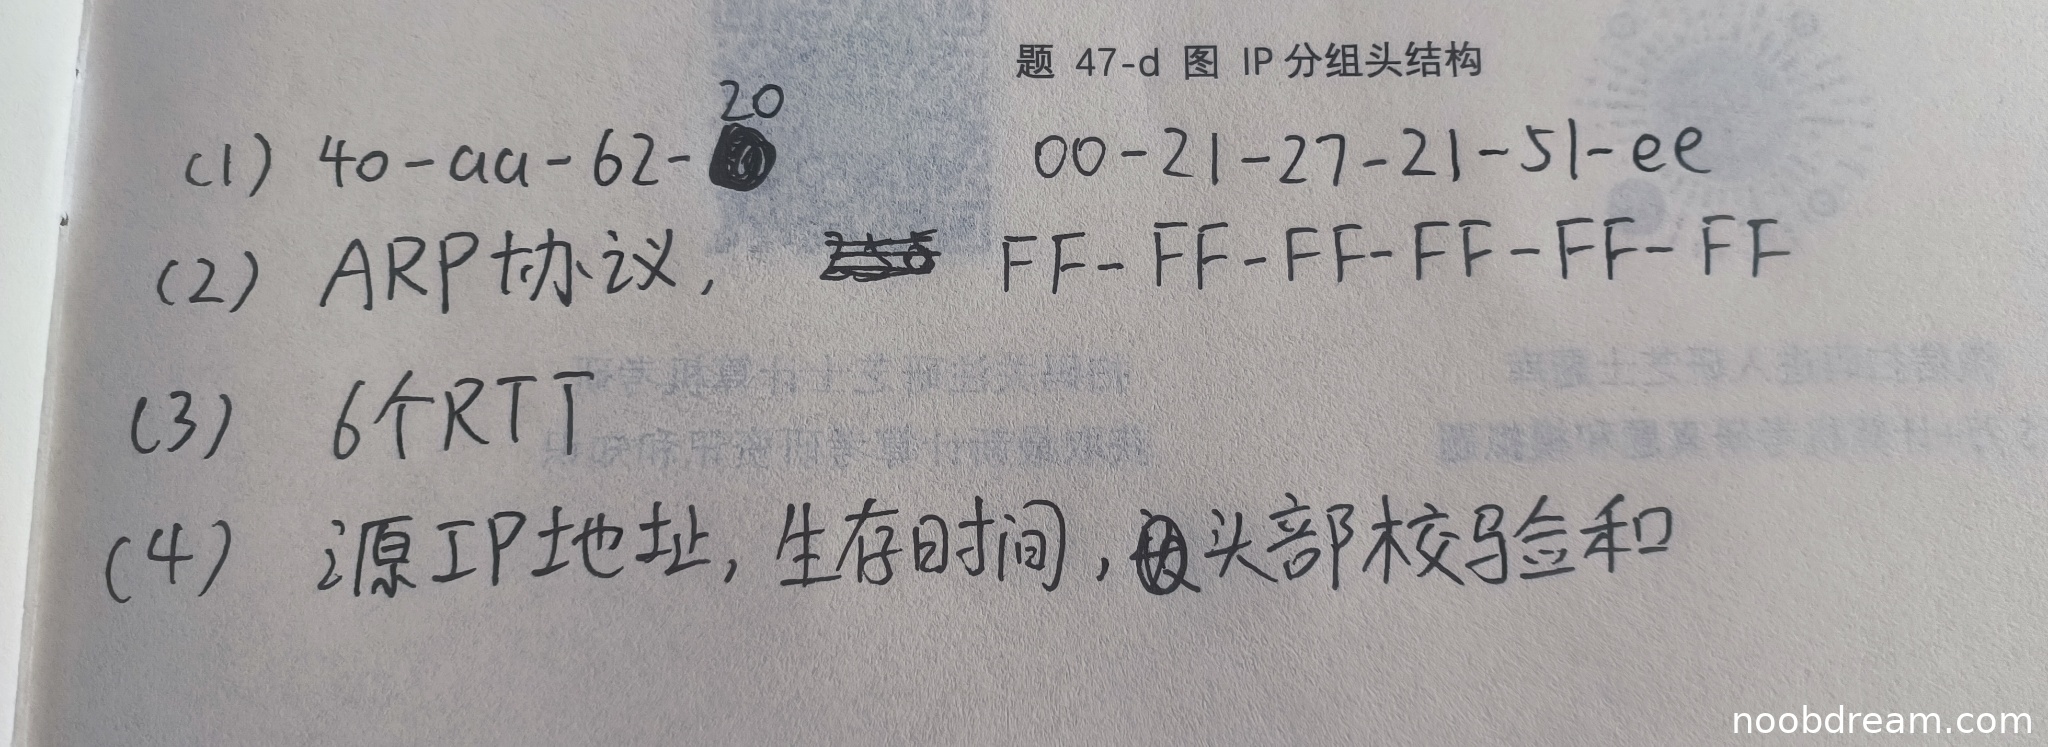 题 47-d 图 IP 分组头结构
(1) 40-aa-62-20 00-21-27-21-51-ee
(2) ARP协议, FF-FF-FF-FF-FF-FF
(3) 6个RTT
(4) 源IP地址, 生存时间, 头部校验和
noobdream.com